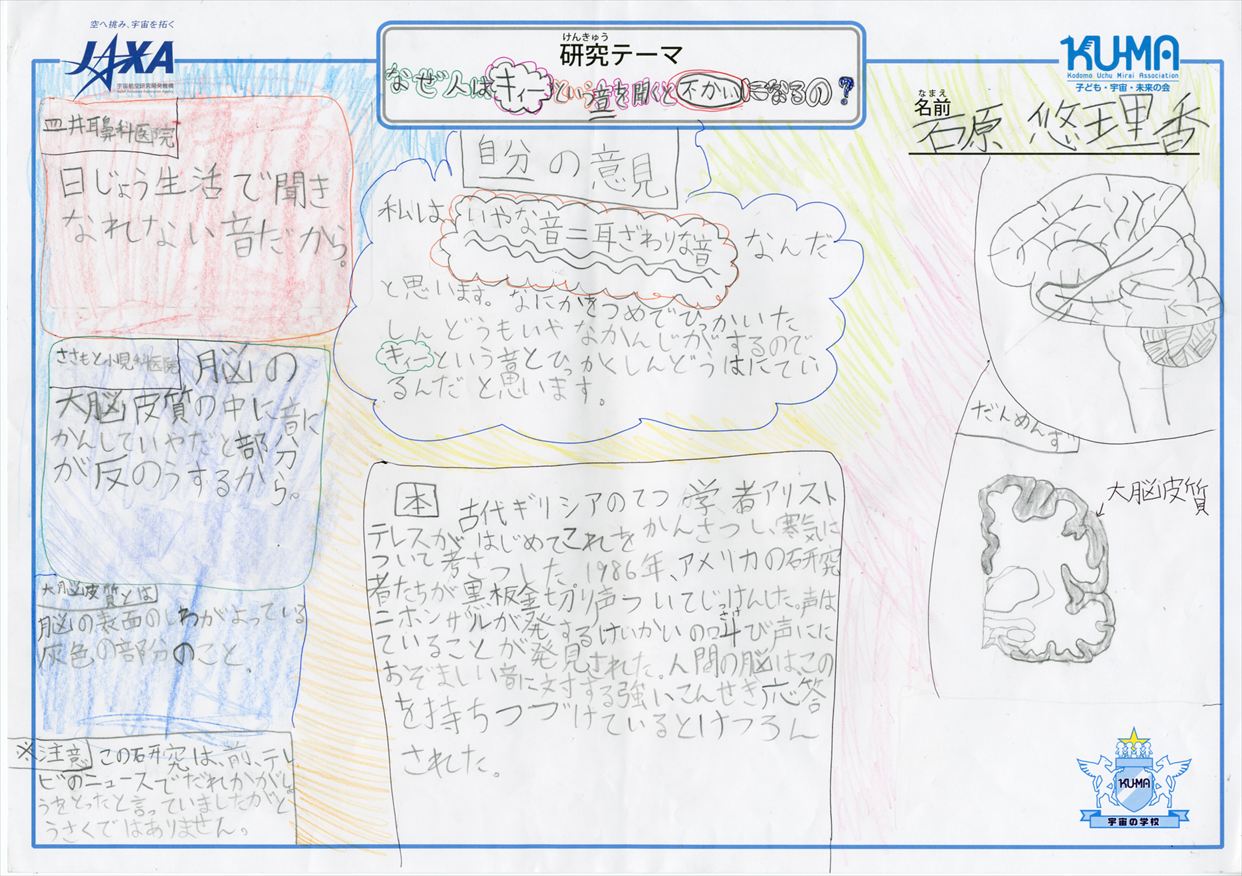 空へ挑み、宇宙を拓く
JAXA
宇宙航空研究開発機構
Japan Aerospace Exploration Agency
けんきゅう
研究テーマ
なぜ人はキィーという音を聞くと不かいになるの?
KU-MA
Kodomo Uchu Mirai Association
子ども・宇宙・未来の会
なまえ
名前
石原 悠理香
皿井耳鼻科医院
日じょう生活で聞き
なれない音だから。
ささもと小児科医院
脳の
大脳皮質の中に音に
かんしていやだと部分
が反のうするから。
大脳皮質とは
脳の表面のしわがよっている
灰色の部分のこと。
※注意 この研究は、前、テレ
ビのニュースでだれかがしょ
うをとったと言っていましたがと
うさくではありません。
自分の意見
私はいやな音=耳ざわりな音なんだ
と思います。なにかをつめでひっかいた
しんどうもいやなかんじがするので
キィーという音とひっかくしんどうはにてい
るんだと思います。
本 古代ギリシアのてつ学者アリスト
テレスがはじめてこれをかんさつし、寒気に
ついて考さつした。1986年、アメリカの研究
者たちが裏板金切り声ついてじっけんした。声は
ニホンザルが発するけいかいの叫び声にに
さけ
ていることが発見された。人間の脳は、この
おぞましい音に対する強いこんせき応答
を持ちつづけているとけつろん
された。
だんめんず
大脳皮質
KU-MA
宇宙の学校